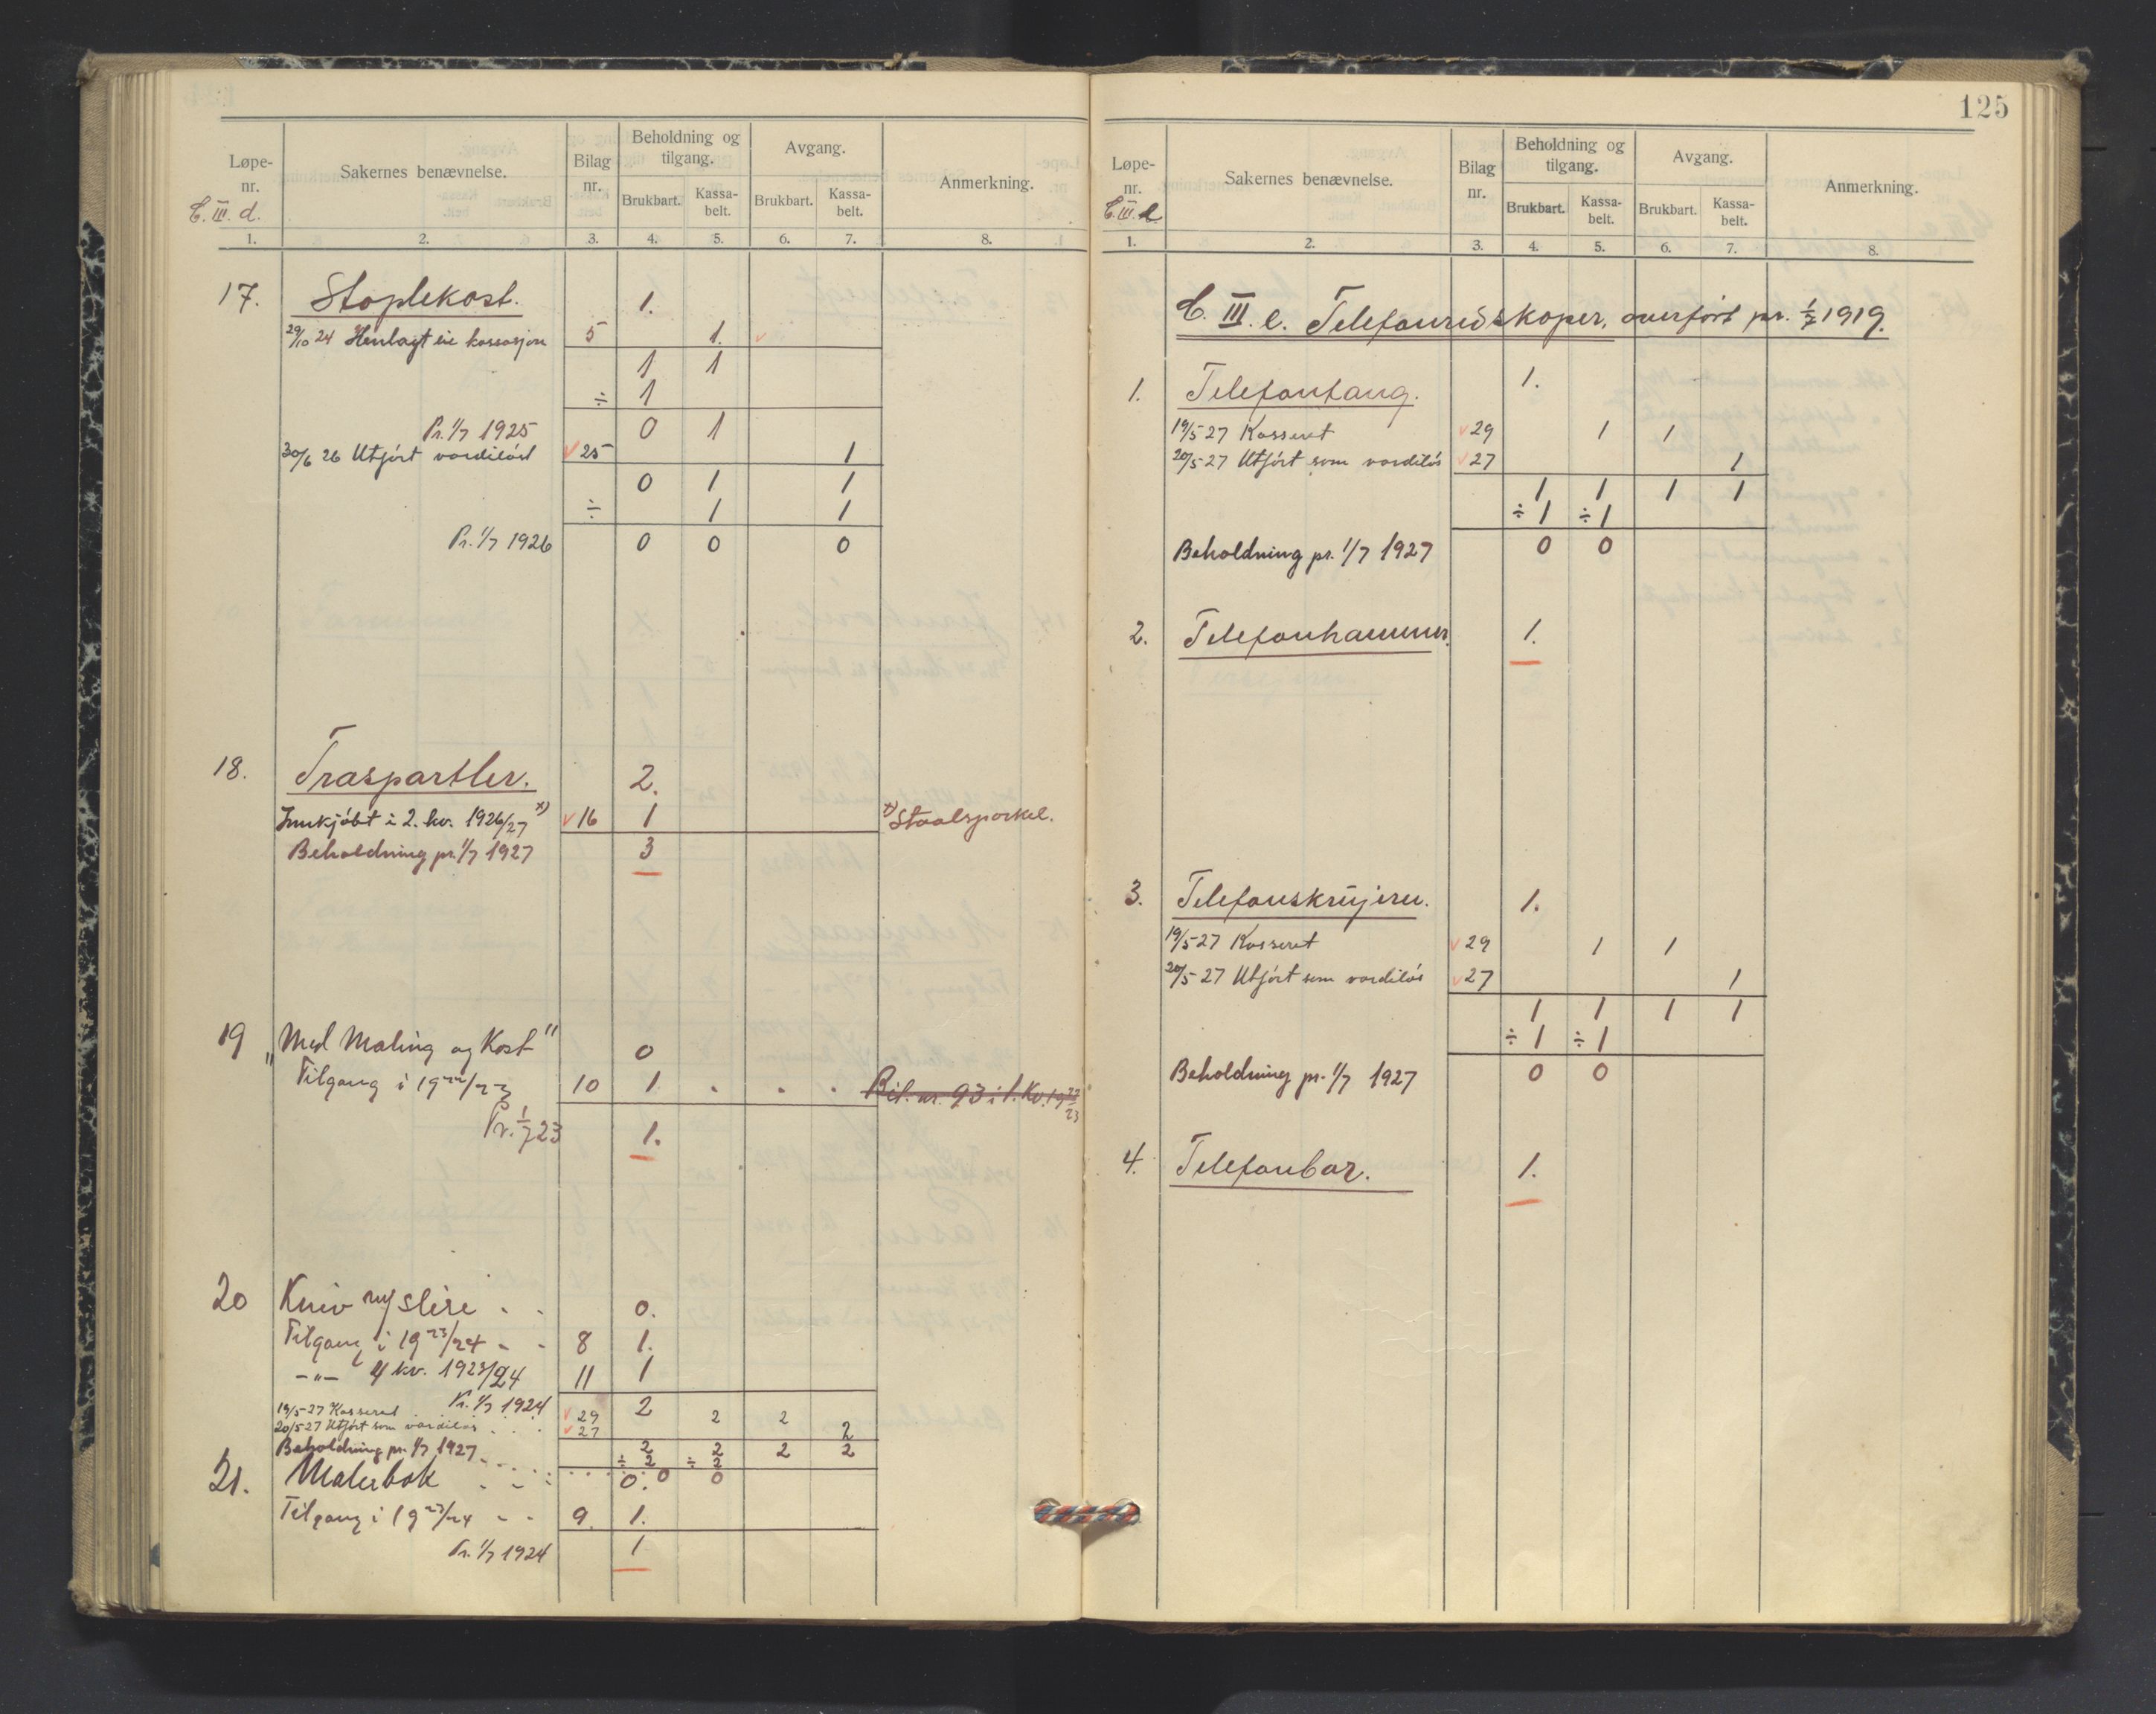 Løpe-
nr.
C. III. d.
Sakernes benævnelse.
Bilag
nr.
Beholdning og
tilgang.
Avgang.
Anmerkning.
Brukbart.
Kassa-
belt.
Brukbart.
Kassa-
belt.
1. 2. 3. 4. 5. 6. 7. 8.
17. Stoplekost. 1.
29/10 24 Henlagt til kassasjon 5 1.
1 1
÷ 1
Pr. 1/7 1925 0 1
30/6 26 Utført verdiløst 25 1
0 1 1
÷ 1 1
Pr. 1/7 1926 0 0 0
18. Traspartler. 2.
Innkjøbt i 2. kv. 1926/27 x) 16 1 x) Staalsparkel.
Beholdning pr. 1/7 1927 3
19 "Med Maling og Kost" 0
Tilgang i 1922/23 10 1 . . . Bil. nr. 93 i 1. Kv. 1922/23
Pr. 1/7 23 1.
20 Kniv m/ slire . . 0.
Tilgang i 1923/24 - - 8 1.
-"- i 4 kv. 1923/24 11 1
Pr. 1/7 1924 2
19/5-27 Kasseret 29 2 2
20/5-27 Utført som verdiløs . . . 27 2
2 2 2 2
÷ 2 ÷ 2
Beholdning pr. 1/7 1927 0 0
21. Malerbok . - - 0.
Tilgang i 1923/24 - - 9. 1.
Pr. 1/7 1924 1
125
Løpe-
nr.
C. III. e.
Sakernes benævnelse.
Bilag
nr.
Beholdning og
tilgang.
Avgang.
Anmerkning.
Brukbart.
Kassa-
belt.
Brukbart.
Kassa-
belt.
1. 2. 3. 4. 5. 6. 7. 8.
C. III. e. Telefonredskaper, overført pr. 1/7 1919.
1. Telefontang. 1.
19/5-27 Kasseret 29 1 1
20/5-27 Utført som verdiløs 27 1
1 1 1 1
÷ 1 ÷ 1
Beholdning pr. 1/7 1927 0 0
2. Telefonhammer. 1.
3. Telefonskrujern. 1.
19/5-27 Kasseret 29 1 1
20/5-27 Utført som verdiløs 27 1
1 1 1 1
÷ 1 ÷ 1
Beholdning pr. 1/7 1927 0 0
4. Telefonbor. 1.